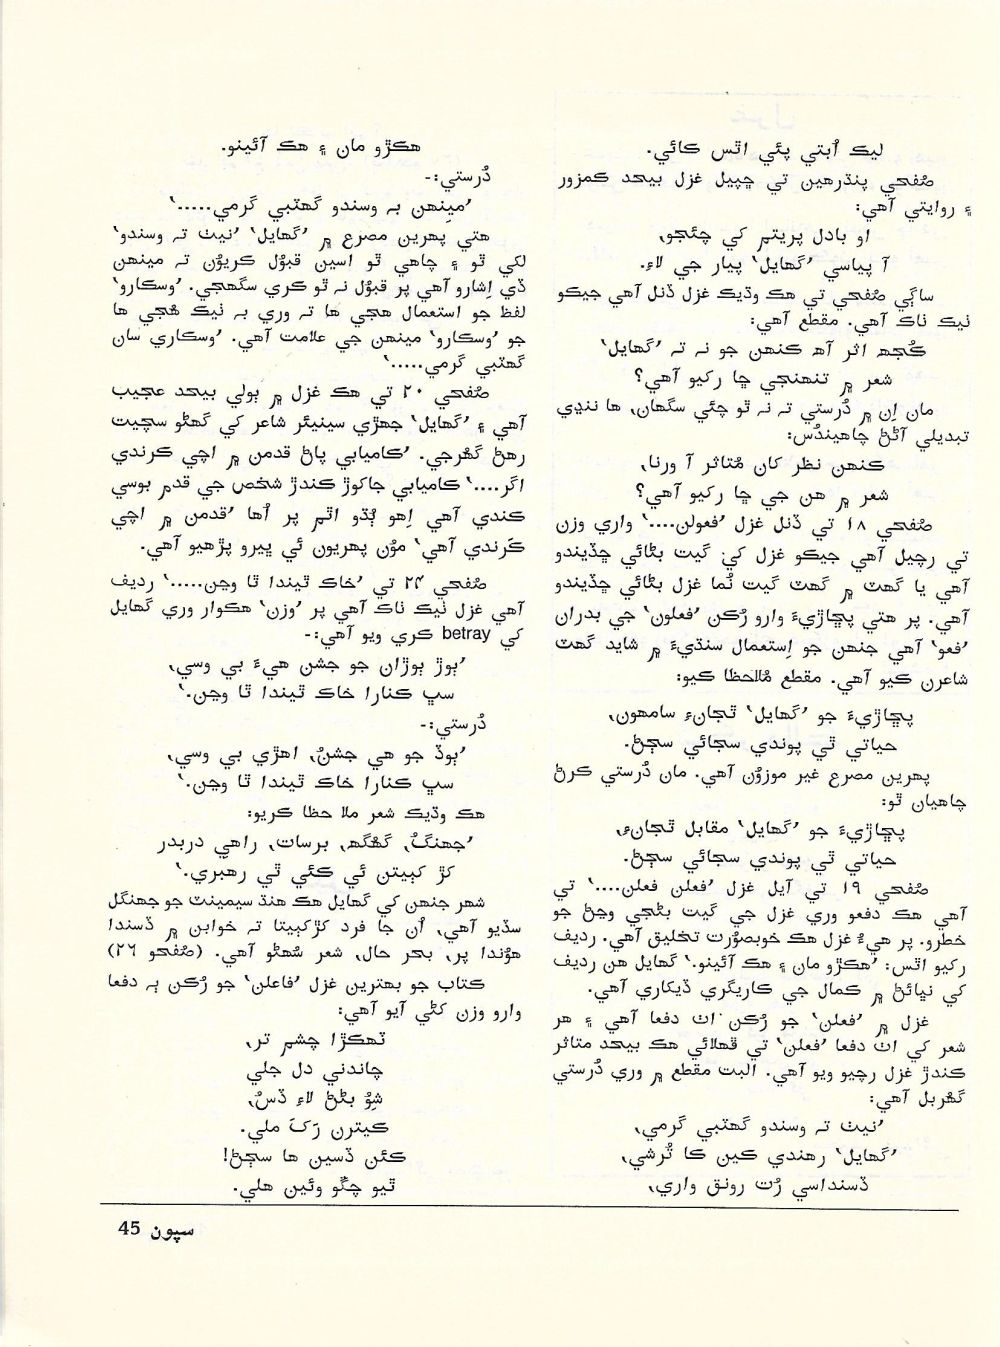 ليڪ اُبتي پئي اٿس ڪاٿي.
صُفحي پنڌرهين تي ڇپيل غزل بيحد ڪمزور
۽ روايتي آهي:
او بادل پريتم کي چئجو،
آ پياسي ’گهايل‘ پيار جي لاءِ.
ساڳي صُفحي تي هڪ وڌيڪ غزل ڏنل آهي جيڪو
ٺيڪ ٺاڪ آهي. مقطع آهي:
ڪُجهه اثر آهه ڪنهن جو نه ته ’گهايل‘
شعر ۾ تنهنجي ڇا رکيو آهي؟
مان اِن ۾ دُرستي ته نه ٿو چئي سگهان، ها ننڍي
تبديلي آڻڻ چاهيندُس:
ڪنهن نظر کان مُتاثر آ ورنا،
شعر ۾ هن جي ڇا رکيو آهي؟
صُفحي ١٨ تي ڏنل غزل ’فعولن....‘ واري وزن
تي رچيل آهي جيڪو غزل کي گيت بڻائي ڇڏيندو
آهي يا گهٽ ۾ گهٽ گيت نُما غزل بڻائي ڇڏيندو
آهي. پر هتي پڇاڙيءَ وارو رُڪن ’فعلون‘ جي بدران
’فعو‘ آهي جنهن جو اِستعمال سنڌيءَ ۾ شايد گهٽ
شاعرن ڪيو آهي. مقطع مُلاحظا ڪيو:
پڇاڙيءَ جو ’گهايل‘ ٿڃانءِ سامهون،
حياتي ٿي پوندي سجائي سڄڻ.
پهرين مصرع غير موزوُن آهي. مان دُرستي ڪرڻ
چاهيان ٿو:
پڇاڙيءَ جو ’گهايل‘ مقابل ٿڃانءِ،
حياتي ٿي پوندي سجائي سڄڻ.
صُفحي ١٩ تي آيل غزل ’فعلن فعلن....‘ تي
آهي هڪ دفعو وري غزل جي گيت بڻجي وڃڻ جو
خطرو. پر هيءُ غزل هڪ خوبصوُرت تخليق آهي. رديف
رکيو اٿس: ’هڪڙو مان ۽ هڪ آئينو.‘ گهايل هن رديف
کي نڀائڻ ۾ ڪمال جي ڪاريگري ڏيکاري آهي.
غزل ۾ ’فعلن‘ جو رُڪن اٺ دفعا آهي ۽ هر
شعر کي اٺ دفعا ’فعلن‘ تي ڦهلائي هڪ بيحد متاثر
ڪندڙ غزل رچيو ويو آهي. البت مقطع ۾ وري دُرستي
گهُربل آهي:
’نيٺ ته وسندو گهٽبي گرمي،
’گهايل‘ رهندي ڪين ڪا تُرشي،
ڏسنداسي رُت رونق واري،
هڪڙو مان ۽ هڪ آئينو.
دُرستي:-
’مينهن به وسندو گهٽبي گرمي.....‘
هتي پهرين مصرع ۾ ’گهايل‘ ’نيٺ ته وسندو‘
لکي ٿو ۽ چاهي ٿو اسين قبوُل ڪريوُن ته مينهن
ڏي اِشارو آهي پر قبوُل نه ٿو ڪري سگهجي. ’وسڪارو‘
لفظ جو استعمال هجي ها ته وري به ٺيڪ هُجي ها
جو ’وسڪارو‘ مينهن جي علامت آهي. ’وسڪاري سان
گهٽبي گرمي.....‘
صُفحي ٢٠ تي هڪ غزل ۾ ٻولي بيحد عجيب
آهي ۽ ’گهايل‘ جهڙي سينيئر شاعر کي گهڻو سچيت
رهڻ گهُرجي. ’ڪاميابي پاڻ قدمن ۾ اچي ڪرندي
اگر....‘ ڪاميابي جاکوڙ ڪندڙ شخص جي قدم بوسي
ڪندي آهي اِهو ٻُڌو اٿم پر اُها ’قدمن ۾ اچي
ڪَرندي آهي‘ موُن پهريون ئي ڀيرو پڙهيو آهي.
صُفحي ٢٤ تي ’خاڪ ٿيندا ٿا وڃن.....‘ رديف
آهي غزل ٺيڪ ٺاڪ آهي پر ’وزن‘ هڪوار وري گهايل
کي betray ڪري ويو آهي:-
’ٻوڙ ٻوڙان جو جشن هيءَ بي وسي،
سڀ ڪنارا خاڪ ٿيندا ٿا وڃن.‘
دُرستي:-
’ٻوڏ جو هي جشنُ، اهڙي بي وسي،
سڀ ڪنارا خاڪ ٿيندا ٿا وڃن.‘
هڪ وڌيڪ شعر ملا حظا ڪريو:
’جهنگُ، گهُگهه، برسات، راهي دربدر
کڙ کٻيتن ئي ڪئي ٿي رهبري.‘
شهر جنهن کي گهايل هڪ هنڌ سيمينٽ جو جهنگل
سڏيو آهي، اُن جا فرد کڙکٻيتا ته خوابن ۾ ڏسندا
هوُندا پر، بحر حال، شعر سُهڻو آهي. (صُفحو ٢٦)
ڪتاب جو بهترين غزل ’فاعلن‘ جو رُڪن ٻه دفعا
وارو وزن کڻي آيو آهي:
ٽهڪڙا چشم تر،
چاندني دل جلي
شِوُ بڻڻ لاءِ ڏسُ،
ڪيترن رَکَ ملي.
ڪئن ڏسين ها سڄڻ!
ٿيو چڱو وئين هلي.
سپون 45